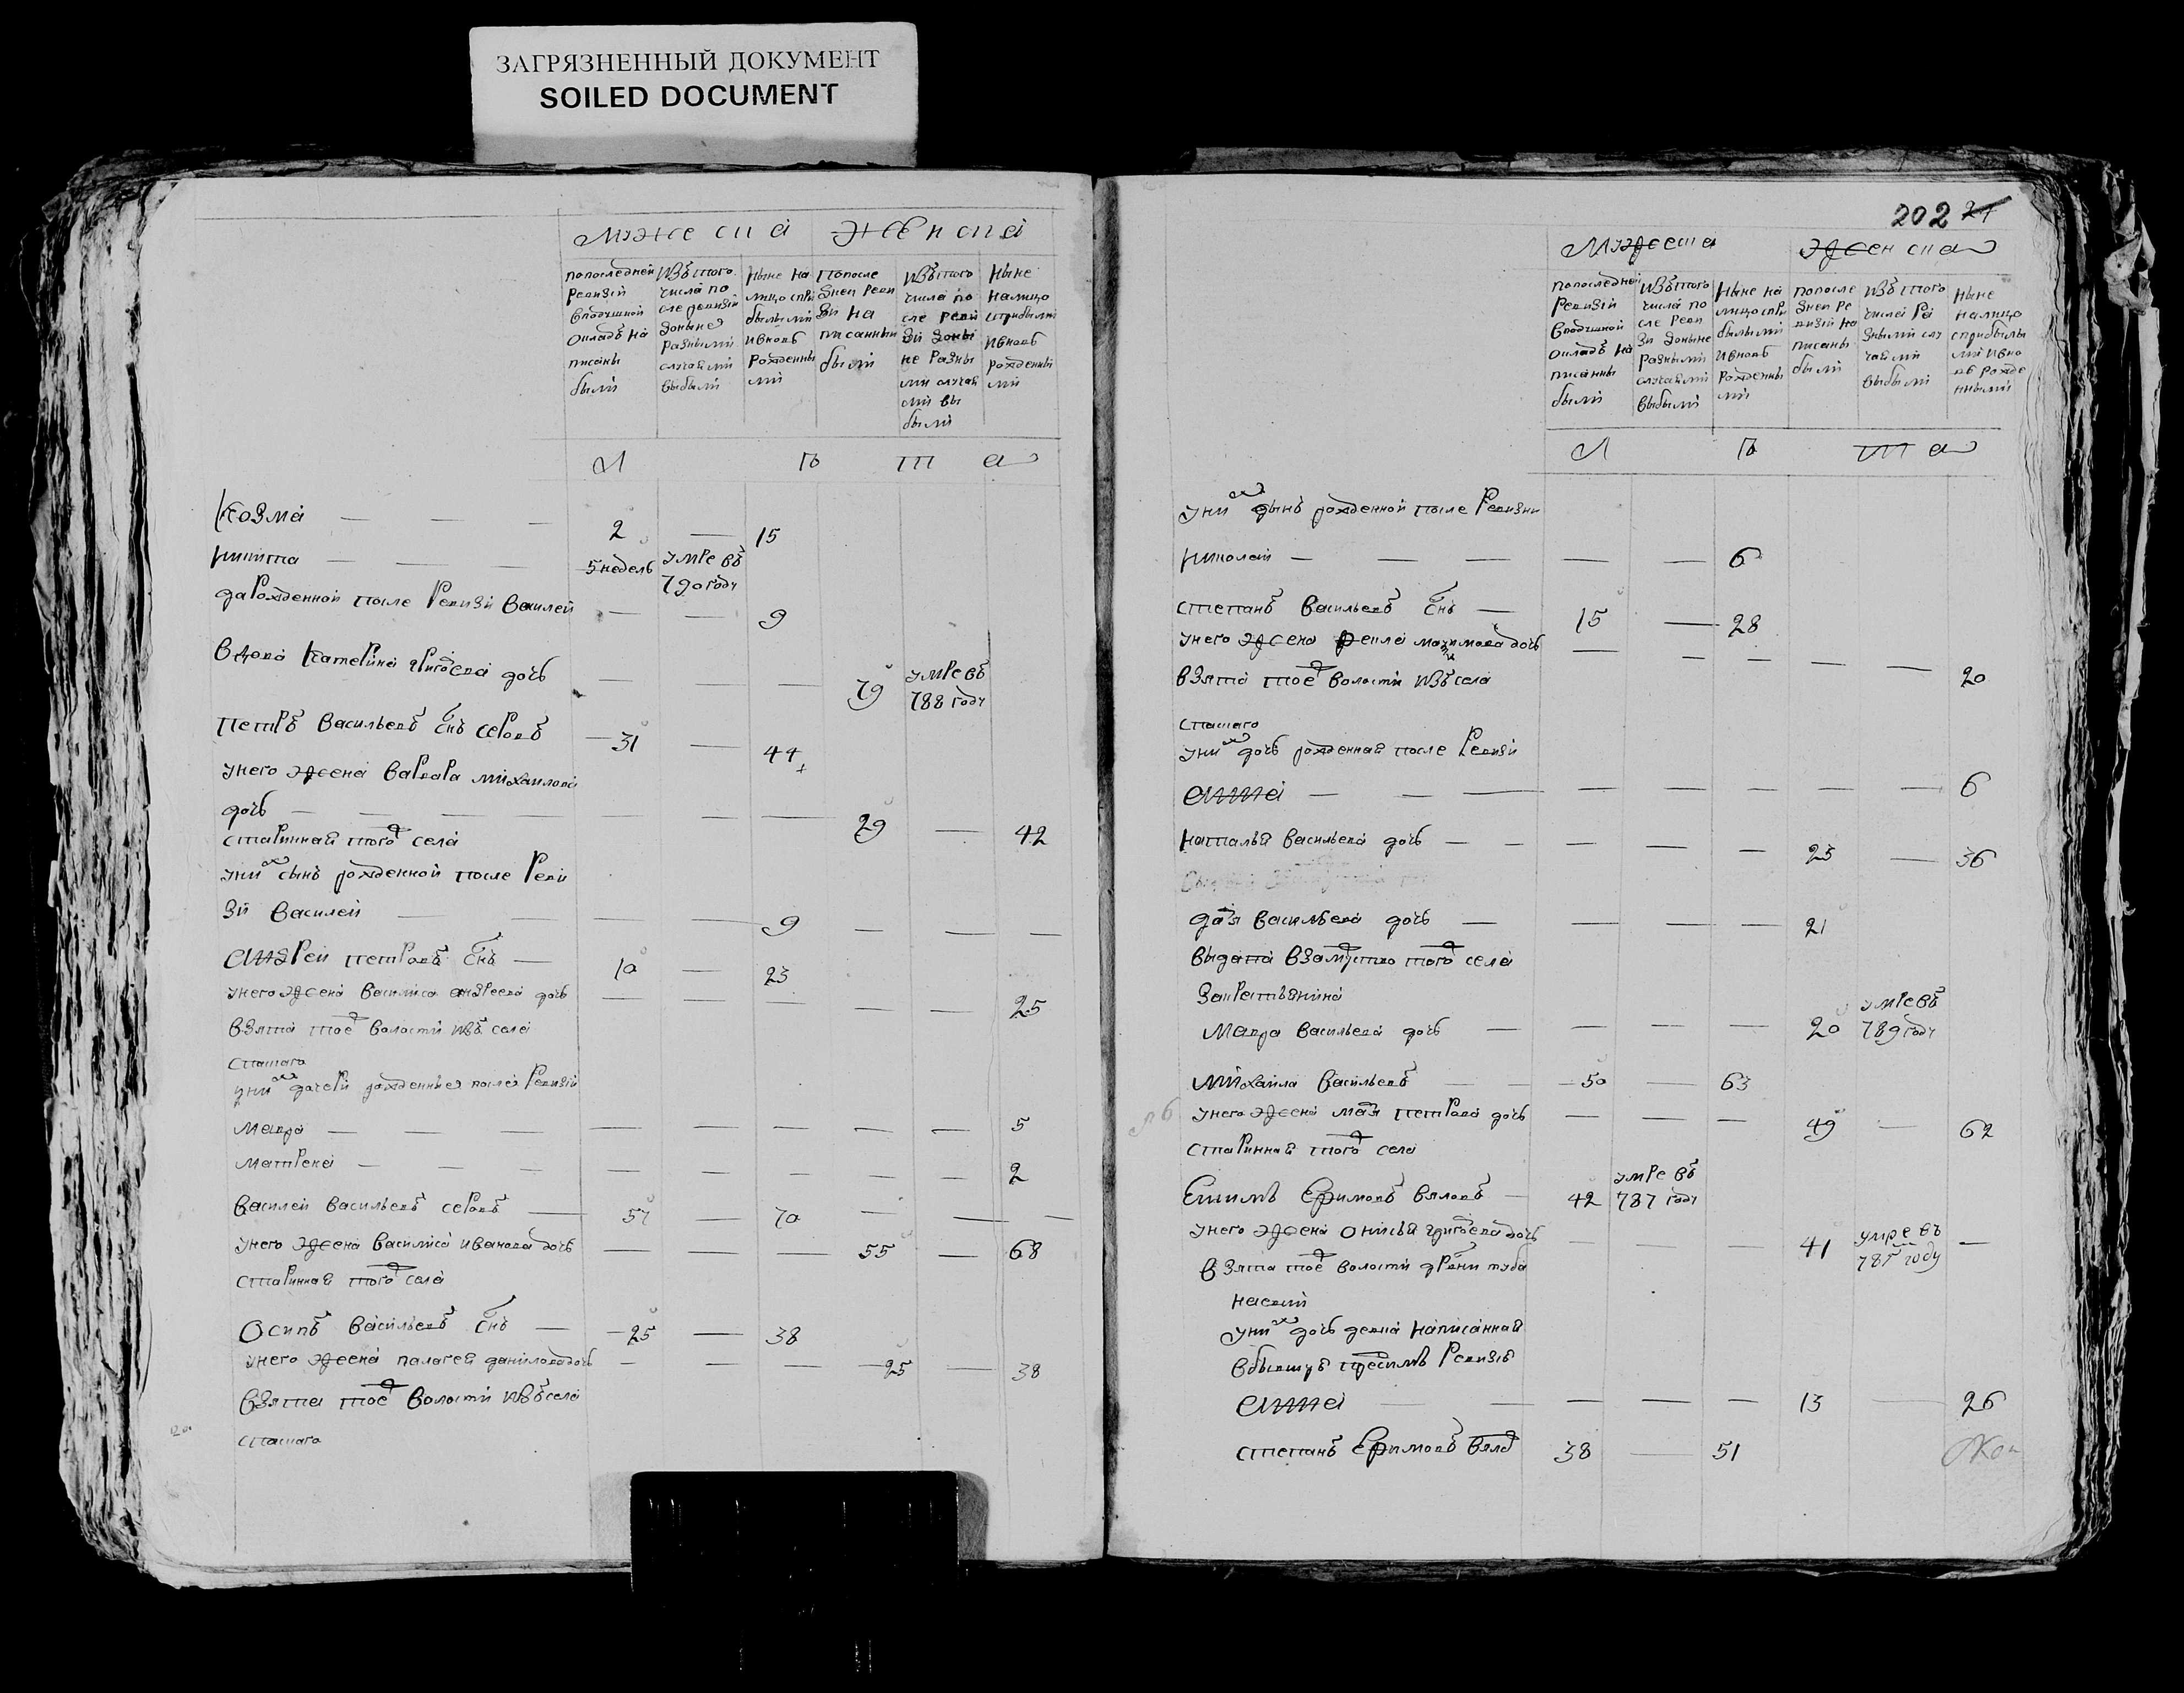 ЗАГРЯЗНЕННЫЙ ДОКУМЕНТ
SOILED DOCUMENT
мужеска женска
попоследней ревизiи вподушной окладъ написаны были
изъ того числа после ревизiи доныне разными случаями выбыли
ныне налицо сприбылыми ивновь рожденными
попоследней ревизiи написанными были
изъ того числа после ревизiи доныне разными случаями выбыли
ныне налицо сприбылыми ивновь рожденными
л ѣ т а
Козма — — — 2 — 15
никита — — — 5 недель умре въ 790 году
да рожденной после Ревизiи василей — — 9
вдова Катерина григорева дочь — — — 79 умре въ 788 году
петръ васильевъ снъ серовъ — 31 — 44
унего жена варвара михаилова
дочь — — — — — — 29 — 42
старинная того села
уних сынъ рожденной после Реви
зiи василей — — — — 9 — — —
андрей петровъ снъ — 10 — 23
унего жена василиса андреева дочь — — — — — 25
взята тое волости изъ села
спаскаго
уних дочери рожденные после Ревизiи
мавра — — — — — — — — 5
матрена — — — — — — — — 2
василей васильевъ серовъ — 57 — 70 — — —
унего жена василиса иванова дочь — — — 55 — 68
старинная того села
Осипъ васильевъ снъ — 25 — 38
унего жена палагея данилова дочь — — — 25 — 38
взята тое волости изъ села
спаскаго
202 21
мужеска женска
попоследней ревизiи вподушной окладъ написанны были
изъ того числа после ревизiи доныне разными случаями выбыли
ныне налицо сприбылыми ивновь рожденными
попоследней ревизiи написаны были
изъ того числа разными случаями выбыли
ныне налицо сприбылыми ивновь рожденными
л ѣ т а
уних сынъ рожденной после Ревизии
николай — — — — — 6
степанъ васильевъ снъ — 15 — 28
унего жена фекла максимова дочь — — — — —
взята тое волости изъ села 20
спаскаго
уних дочь рожденная после Ревизiи
анна — — — — — — — — 6
наталья васильева дочь — — — — — 23 — 36
дарья васильева дочь — — — — 21
выдана взамуство того села
закрестьянина
мавра васильева дочь — — — — 20 умре въ 789 году
михаила васильевъ — — 50 — 63
унего жена марья петрова дочь — — — 49 — 62
старинная того села
Екимъ Ефимовъ вяловъ — 42 умре въ 787 году
унего жена онисья григорева дочь — — — 41 умре въ 785 году —
взята тое волости дрвни туба
наевки
уних дочь девка написанная
вбывшую пресимъ Ревизiю
анна — — — — — 13 — 26
степанъ Ефимовъ вялов 38 — 51